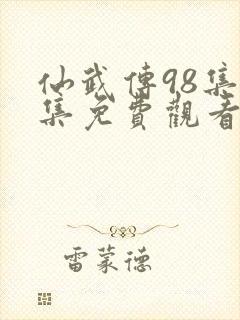 仙武傳98集
集免費觀看
雷蒙德